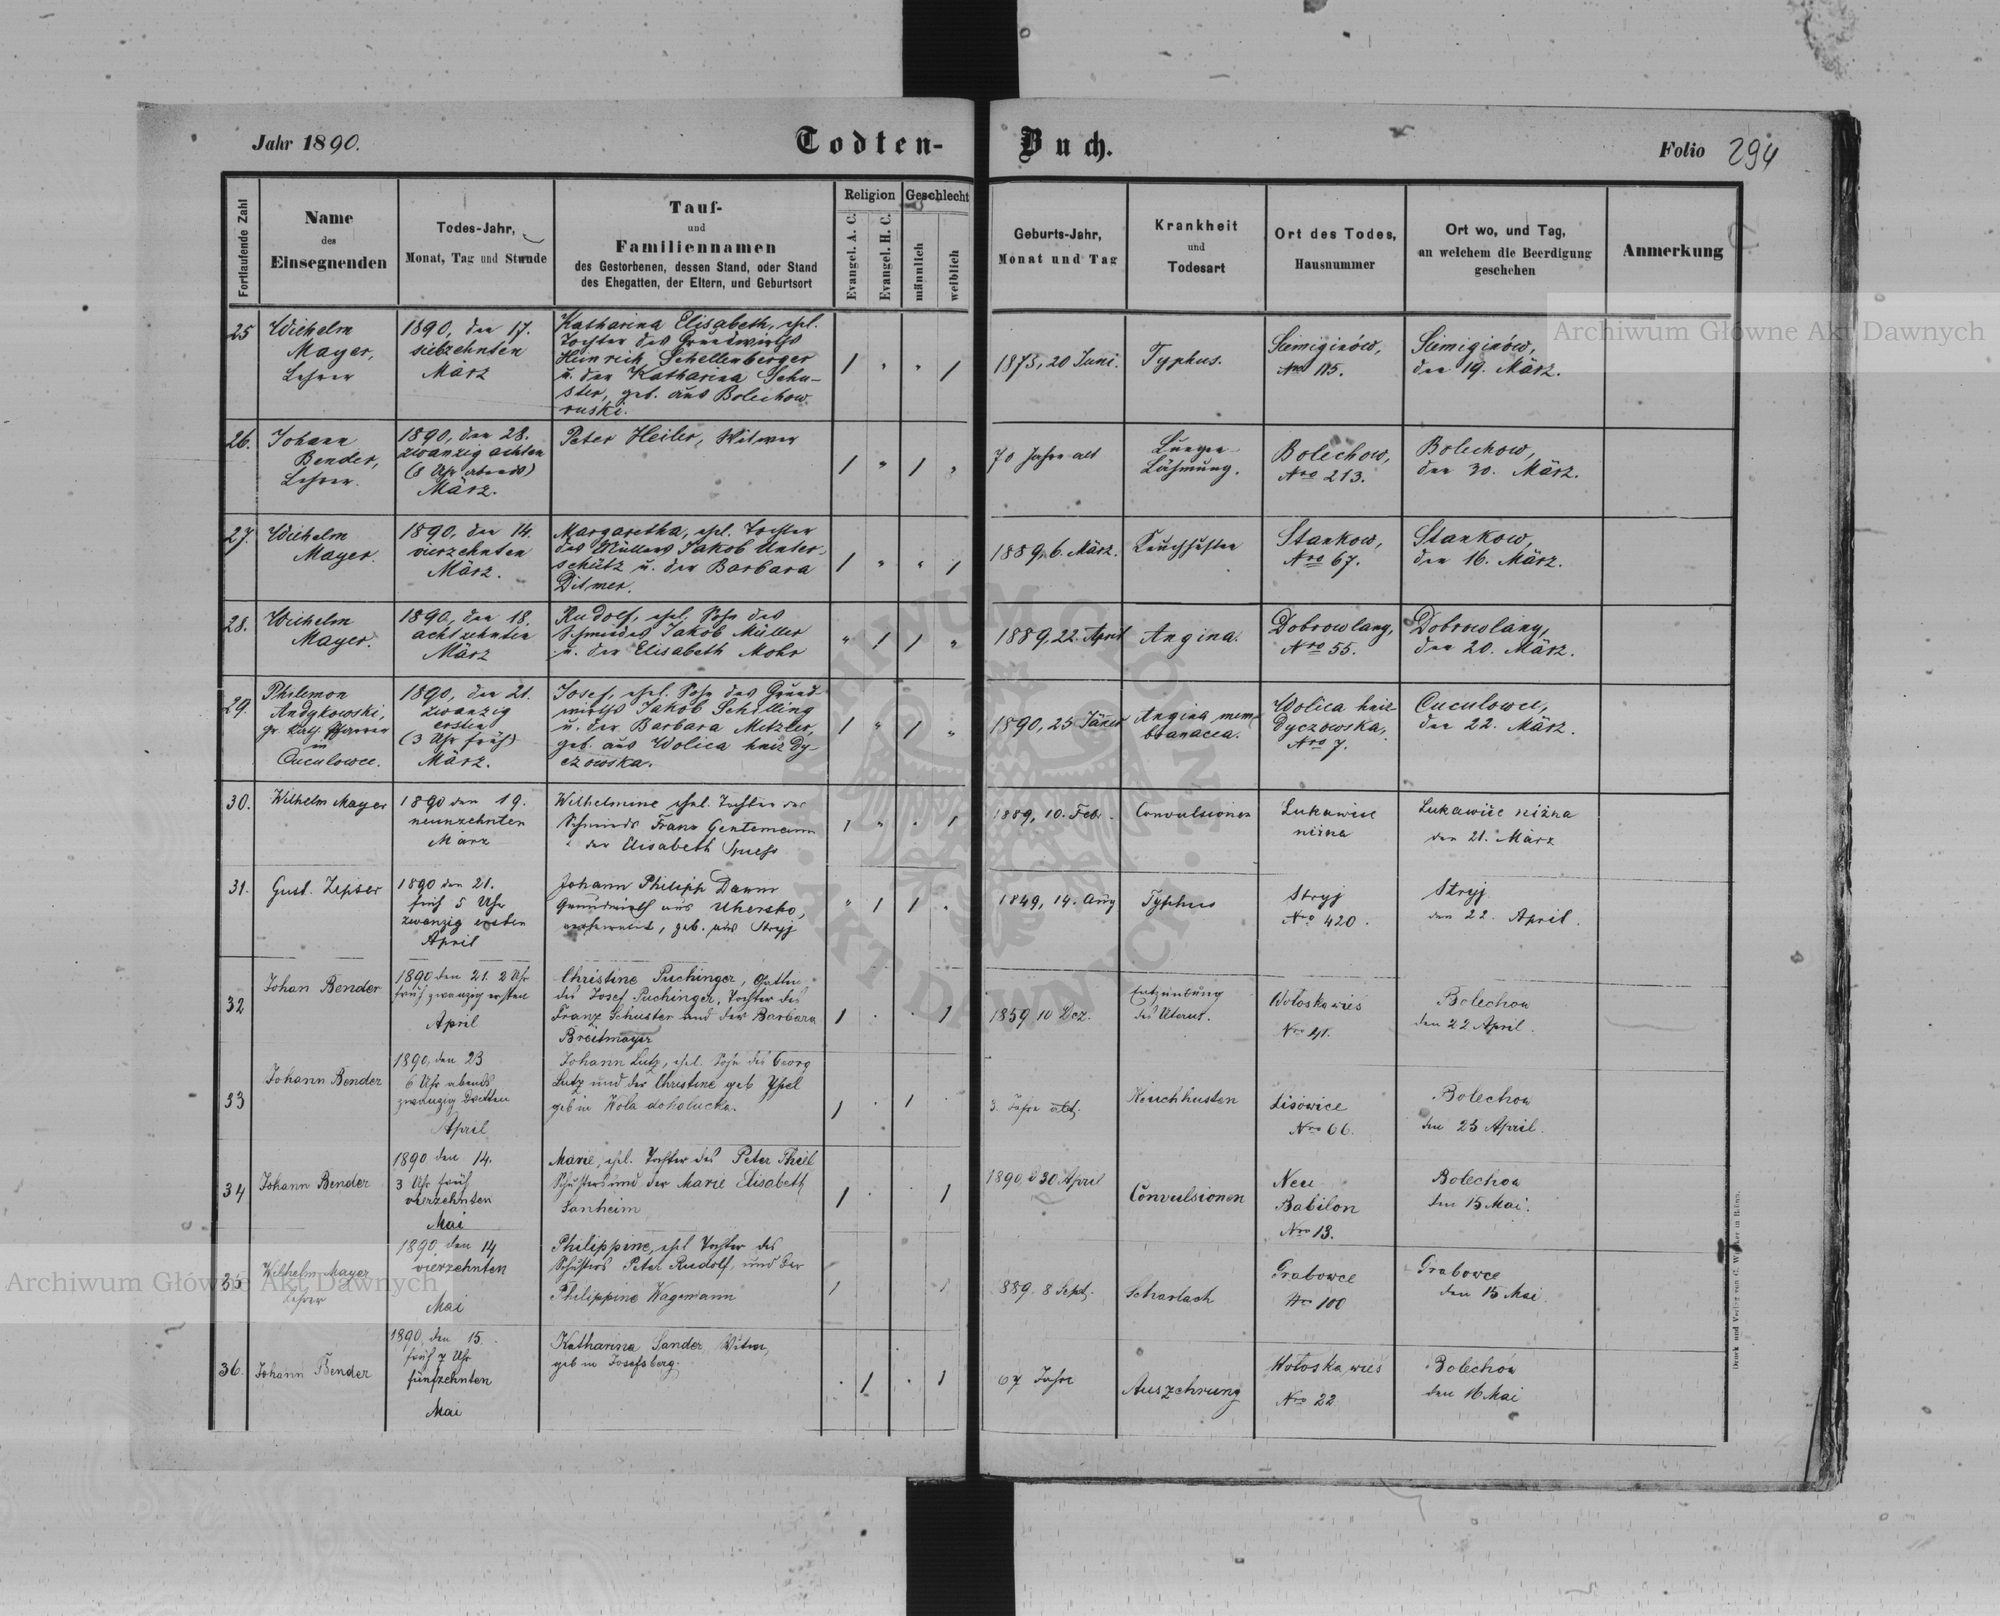 Jahr 1890.
Todten-Buch.
Folio 294
Fortlaufende Zahl
Name
des
Einsegnenden
Todes-Jahr,
Monat, Tag und Stunde
Tauf-
und
Familiennamen
des Gestorbenen, dessen Stand, oder Stand
des Ehegatten, der Eltern, und Geburtsort
Religion
Evangel. A. C.
Evangel. H. C.
Geschlecht
männlich
weiblich
Geburts-Jahr,
Monat und Tag
Krankheit
und
Todesart
Ort des Todes,
Hausnummer
Ort wo, und Tag,
an welchem die Beerdigung
geschehen
Anmerkung
25
Wilhelm
Mayer,
Lehrer
1890, den 17.
siebzehnten
März
Katharina Elisabeth, ehel.
Tochter des Grundwirths
Heinrich Schellenberger
u. der Katharina Schu-
ster, geb. aus Bolechow
ruski.
/ " " /
1875, 20 Juni.
Typhus.
Siemiginów,
Nro 115.
Siemiginów,
den 19. März.
26.
Johann
Bender,
Lehrer.
1890, den 28.
zwanzig achten
(8 Uhr abends)
März.
Peter Heiler, Witwer
/ " / "
70 Jahre alt
Lungen-
Lähmung.
Bolechow,
Nro 213.
Bolechow,
den 30. März.
27.
Wilhelm
Mayer.
1890, den 14.
vierzehnten
März.
Margaretha, ehel. Tochter
des Müllers Jakob Unter-
schütz u. der Barbara
Ditmer.
/ " " /
1889, 6. März.
Keuchhusten
Stankow,
Nro 67.
Stankow,
den 16. März.
28.
Wilhelm
Mayer.
1890, den 18.
achtzehnten
März
Rudolf, ehel. Sohn des
Schmiedes Jakob Müller
u. der Elisabeth Mohr
" / / "
1889, 22. April
Angina.
Dobrowlany,
Nro 55.
Dobrowlany,
den 20. März.
29.
Philemon
Andykowski,
gr. kath. Pfarrer
in
Cuculowce.
1890, den 21.
zwanzig
ersten
(3 Uhr früh)
März.
Josef, ehel. Sohn des Grund-
wirths Jakob Schilling
u. der Barbara Metzler,
geb. aus Wolica hniz Dy-
czowska.
/ " / "
1890, 25 Jäner
Angina mem-
branacea.
Wolica hniz
Dyczowska,
Nro 7.
Cuculowce,
den 22. März.
30.
Wilhelm Mayer
1890 den 19.
neunzehnten
März
Wilhelmine ehel. Tochter des
Schmieds Franz Gentemann
u. der Elisabeth
/ " . /
1889, 10. Feb.
Convulsionen
Lukawice
nižna
Lukawice nižna
den 21. März
31.
Gust. Zipser
1890 den 21.
früh 5 Uhr
zwanzig ersten
April
Johann Philipp Daum
Grundwirth aus Uhersko,
verheiratet, geb. aus Stryj
" / / .
1849, 14. Aug
Typhus
Stryj
Nro 420.
Stryj
den 22. April.
32
Johan Bender
1890 den 21. 2 Uhr
früh zwanzig ersten
April
Christine Puchinger, Gattin
des Josef Puchinger, Tochter des
Franz Schuster und der Barbara
Breitmayer
/ . . /
1859 10 Dez.
Entzündung
des Uterus.
Wołoska wieś
Nro 41.
Bolechow
den 22 April.
33
Johann Bender
1890, den 23
6 Uhr abends
zwanzig dritten
April
Johann Lutz, ehel. Sohn des Georg
Lutz und der Christine geb
geb in Wola doholucka.
/ . / .
3. Jahre alt.
Keuchhusten
Lisowice
Nro 66.
Bolechow
den 25 April.
34
Johann Bender
1890, den 14.
3 Uhr früh
vierzehnten
Mai
Marie, ehel. Tochter des Peter Theil
Schusters und der Marie Elisabeth
Sanheim
/ . . /
1890 d 30 April
Convulsionen
Neu
Babilon
Nro 13.
Bolechow
den 15 Mai.
35
Wilhelm Mayer
Lehrer
1890, den 14
vierzehnten
Mai
Philippine, ehel Tochter des
Schusters Peter Rudolf, und der
Philippine Wagemann
/ /
889. 8 Sept.
Scharlach
Grabowce
Nro 100
Grabowce
den 15 Mai.
36.
Johann Bender
1890, den 15.
früh 7 Uhr
fünfzehnten
Mai
Katharina Sander Witwe,
geb in Josefsberg.
. / . /
67 Jahre
Auszehrung
Wołoska wieś
Nro 22
Bolechów
den 16 Mai
Archiwum Główne Akt Dawnych
Archiwum Główne Akt Dawnych
ARCHIWUM GŁÓWNE
AKT DAWNYCH